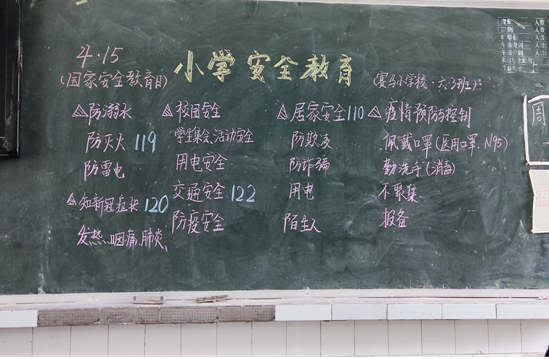 4.15
(国家安全教育日)
小学安全教育
(赛马小学校:六.3班上):
△防溺水
防灭火 119
防雷电
△知新冠症状 120
发热、咽痛、肺炎、
△校园安全
学生集会、活动安全
用电安全
交通安全 122
防疫安全
△居家安全 110
防欺凌
防诈骗
用电
陌生人
△疫情预防控制
佩戴口罩(医用口罩、N95)
勤洗手(消毒)
不聚集
报备
周